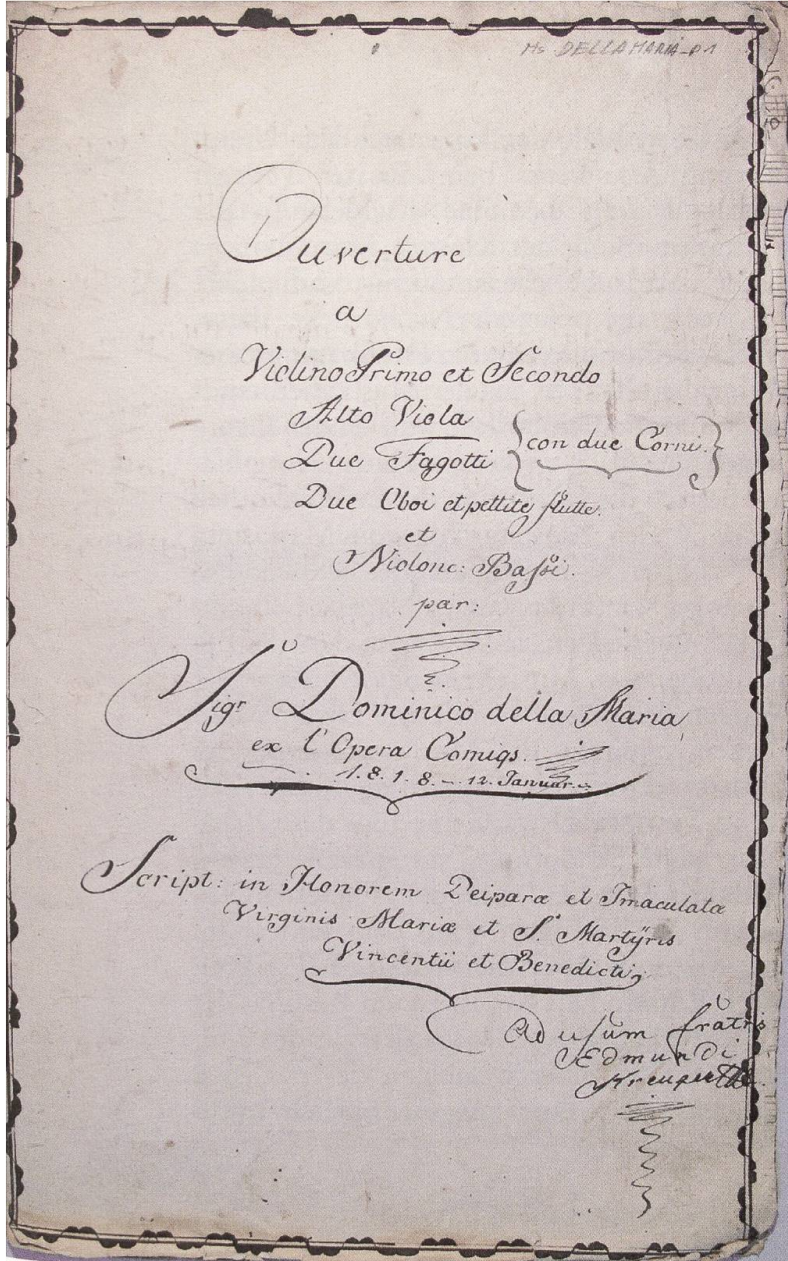 Ms DELLAMARIA_01
Ouverture
a
Violino Primo et Secondo
Alto Viola
Due Fagotti {con due Corni.}
Due Oboi et pettite flutte.
et
Violonc: Bassi.
par:
Sigr Dominico della Maria
ex l'Opera Comiqs.
1.8.1.8. – 12. Januar.
Script: in Honorem Deiparæ et Imaculatæ
Virginis Mariæ et S. Martÿris
Vincentii et Benedicti,
Ad usum fratris
Edmundi